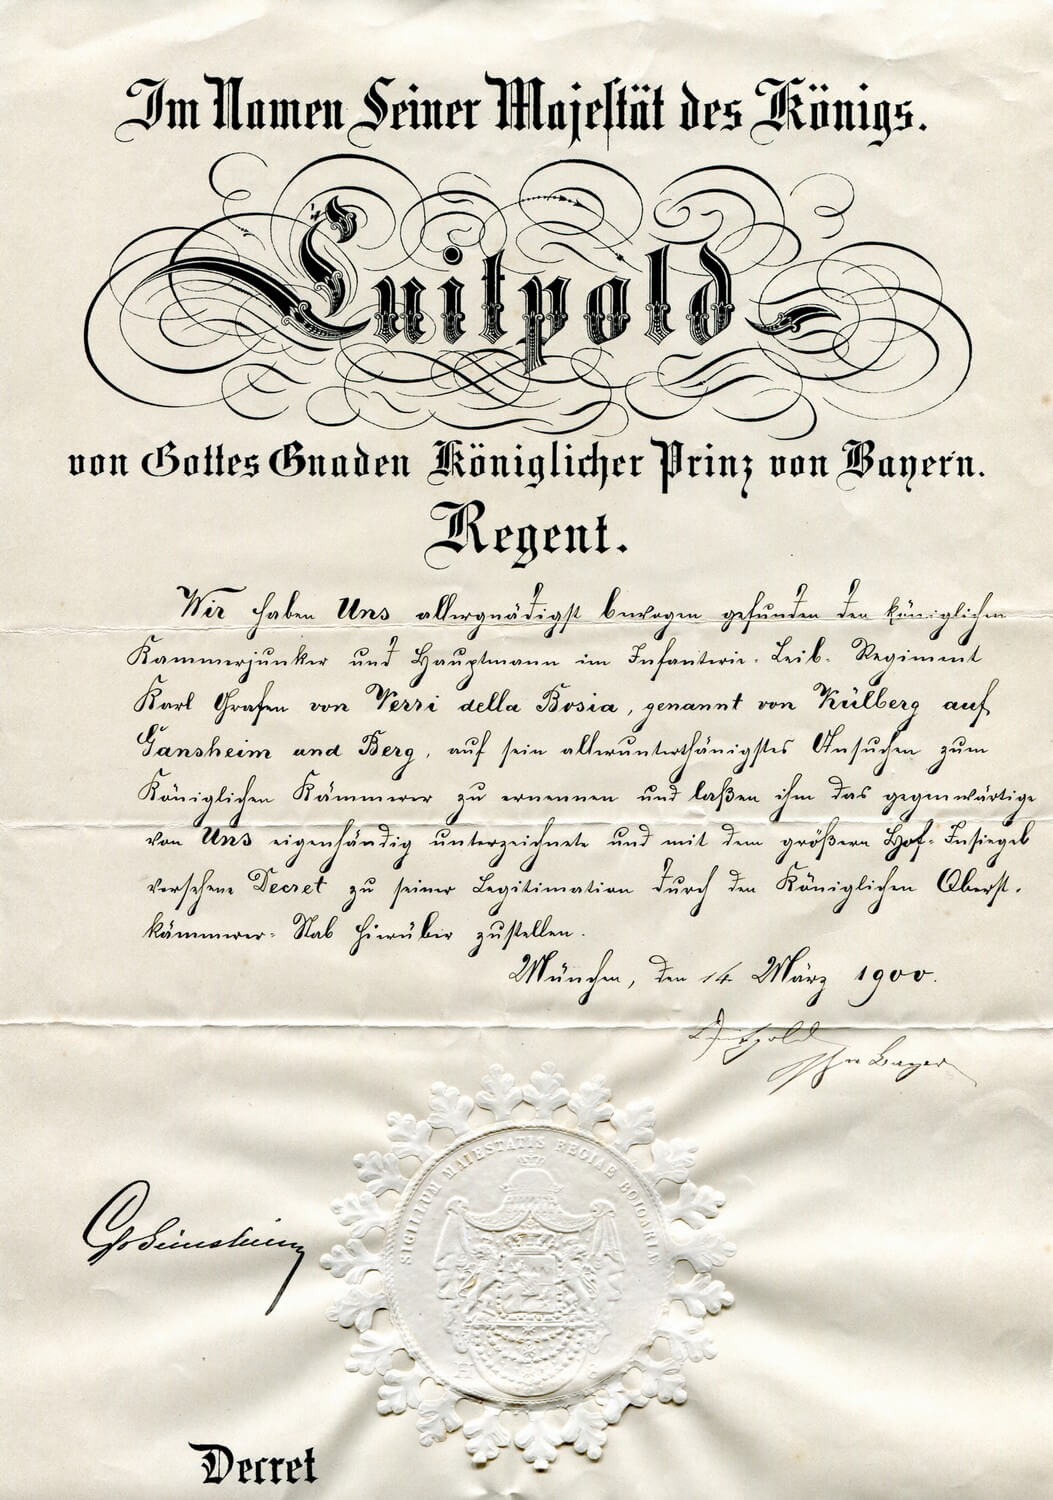 Im Namen Seiner Majestät des Königs.
Luitpold
von Gottes Gnaden Königlicher Prinz von Bayern.
Regent.
Wir haben Uns allergnädigst bewogen gefunden den königlichen
Kammerjunker und Hauptmann im Infanterie-Leib-Regiment
Karl Grafen von Verri della Bosia, genannt von Külberg auf
Gansheim und Berg, auf sein allerunterthänigstes Ansuchen zum
Königlichen Kämmerer zu ernennen und laßen ihm das gegenwärtige
von Uns eigenhändig unterzeichnete und mit dem größern Hof-Insiegel
versehene Decret zu seiner Legitimation durch den Königlichen Oberst-
kämmerer-Stab hierüber zustellen.
München, den 14. März 1900.
Luitpold
SIGILLUM MAIESTATIS REGIAE BOIOARIAE
Decret